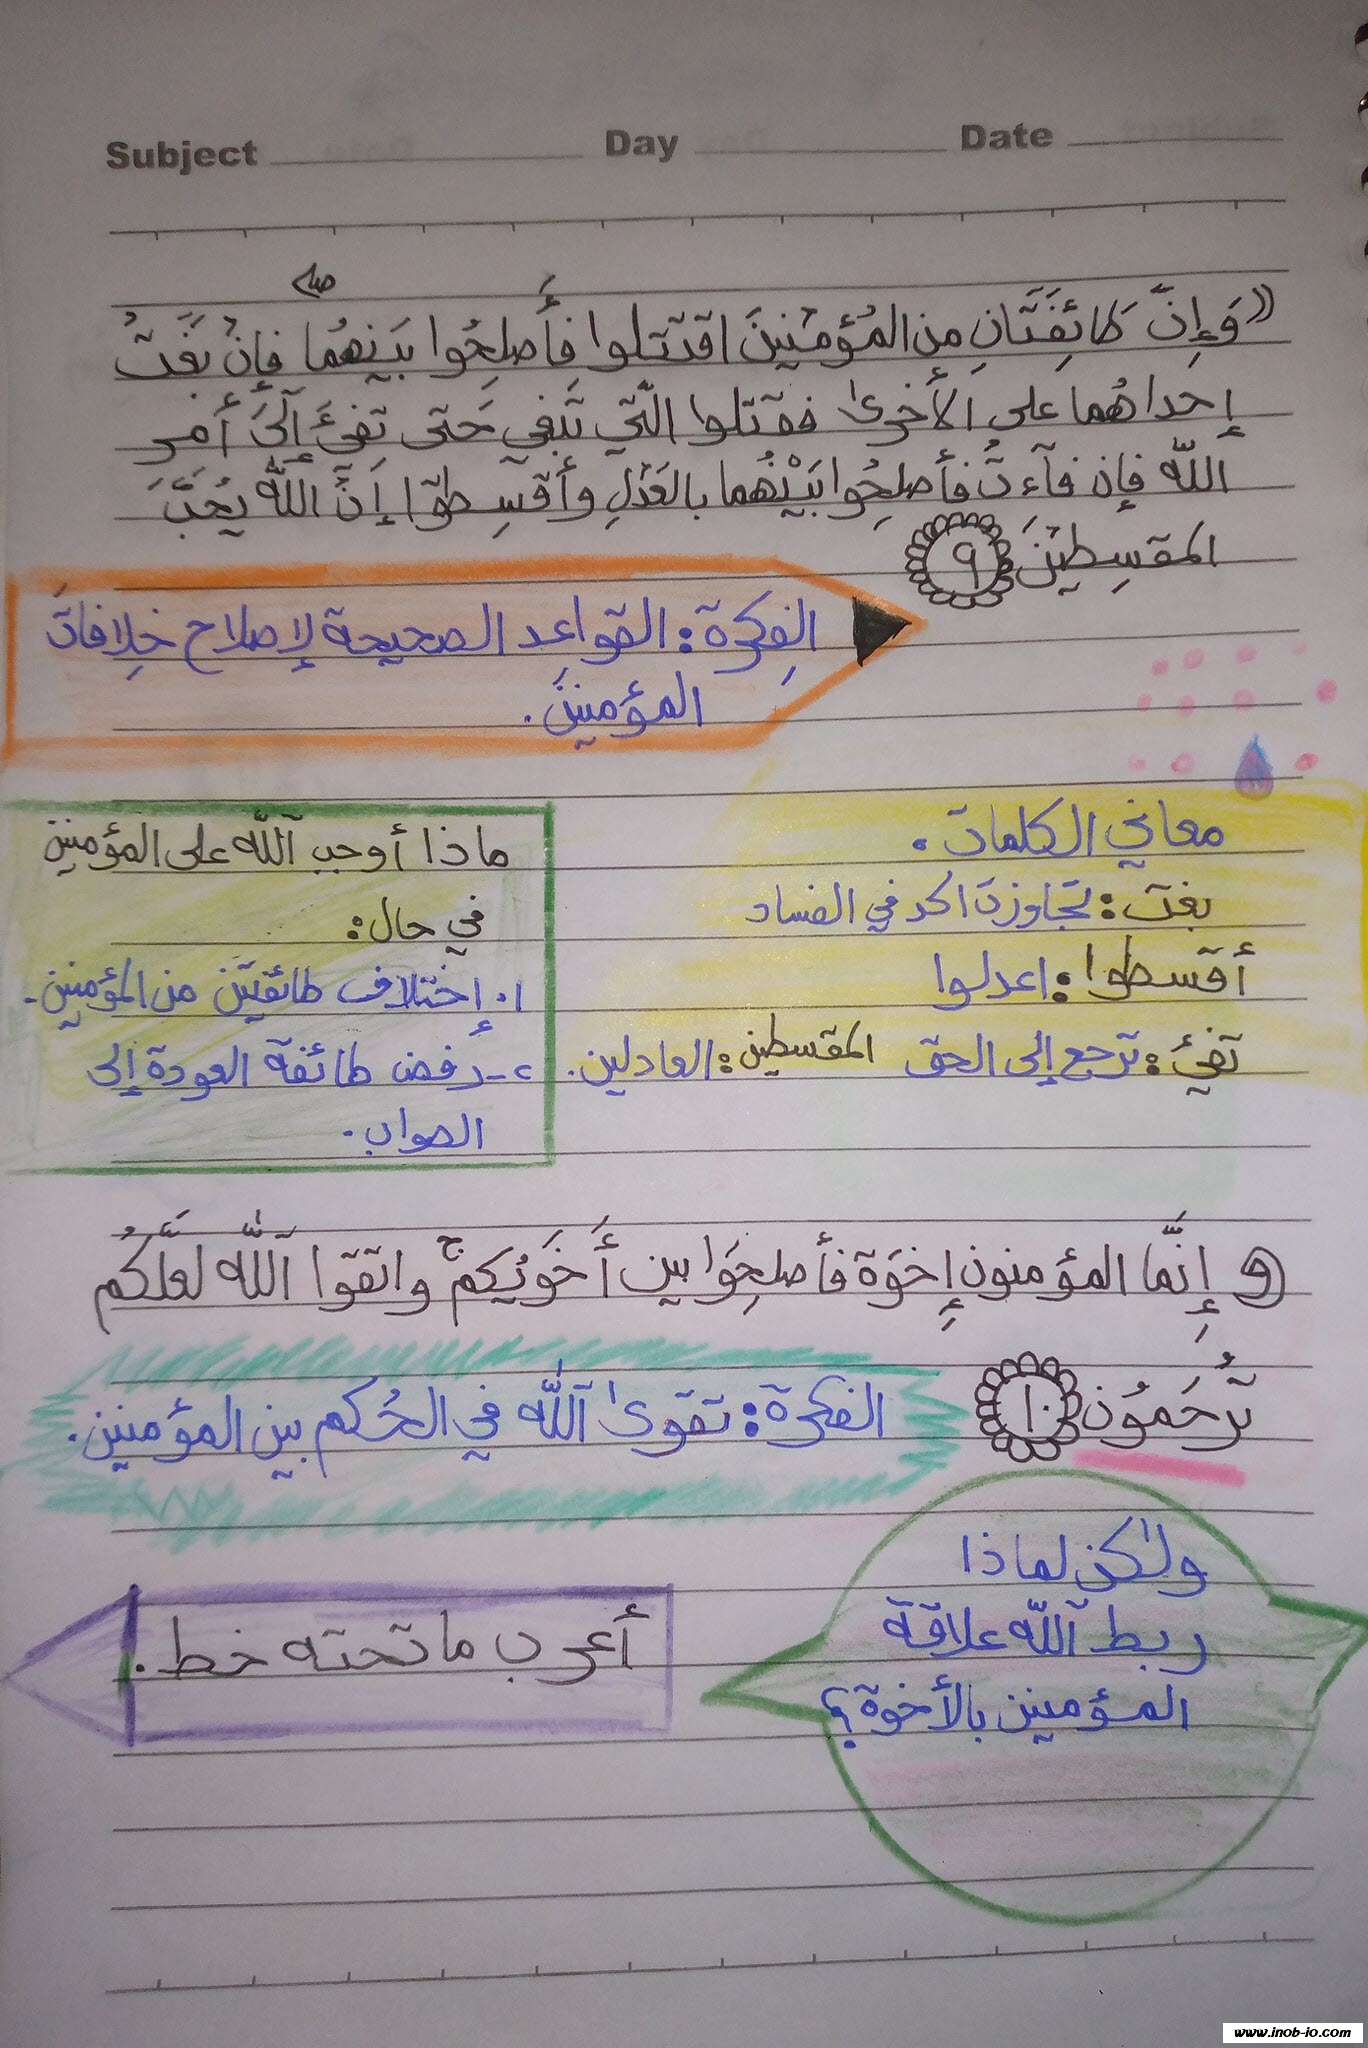 Subject Day Date
«وَإِنَّ طَائِفَتَانِ مِن المُؤْمِنِينَ اقتتلوا فَأَصلِحُوا بَينهُما صلے فَإِنْ بَغَتْ
إِحداهُما على الأُخرىٰ فقتلوا الَّتي تَبغي حَتى تَفيءَ إِلَىَ أَمر
اللّه فإن فآءتْ فأصلِحُوا بَيْنهُما بالعَدْلِ وأَقسِطوا إِنَّ اللَّه يُحَبَّ
المقسِطِينَ ٩
الفِكرة: القواعد الصحيحة لإصلاح خِلافات
المؤمنين.
معاني الكلمات.
بغت: تجاوزت الحد في الفساد
أقسطوا: اعدلوا
تفيءُ: ترجع إلى الحق المقسطين: العادلين.
ماذا أوجب اللّه على المؤمنين
في حال:
١. إختلاف طائفتين من المؤمنين.
٢- رفض طائفة العودة إلى
الصواب.
(( إِنَّما المؤمنون إِخوَة فأصلِحِوَا بين أَخَوَيُكم ج واتقوا اللَّه لعَلَّكُم
تُرحَمُون ١٠
الفكرة: تقوىٰ اللَّه في الحُكم بين المؤمنين.
ولٰكن لماذا
ربط اللَّه علاقة
المؤمنين بالأخوة؟
أعرب ما تحته خط.
www.inob-io.com